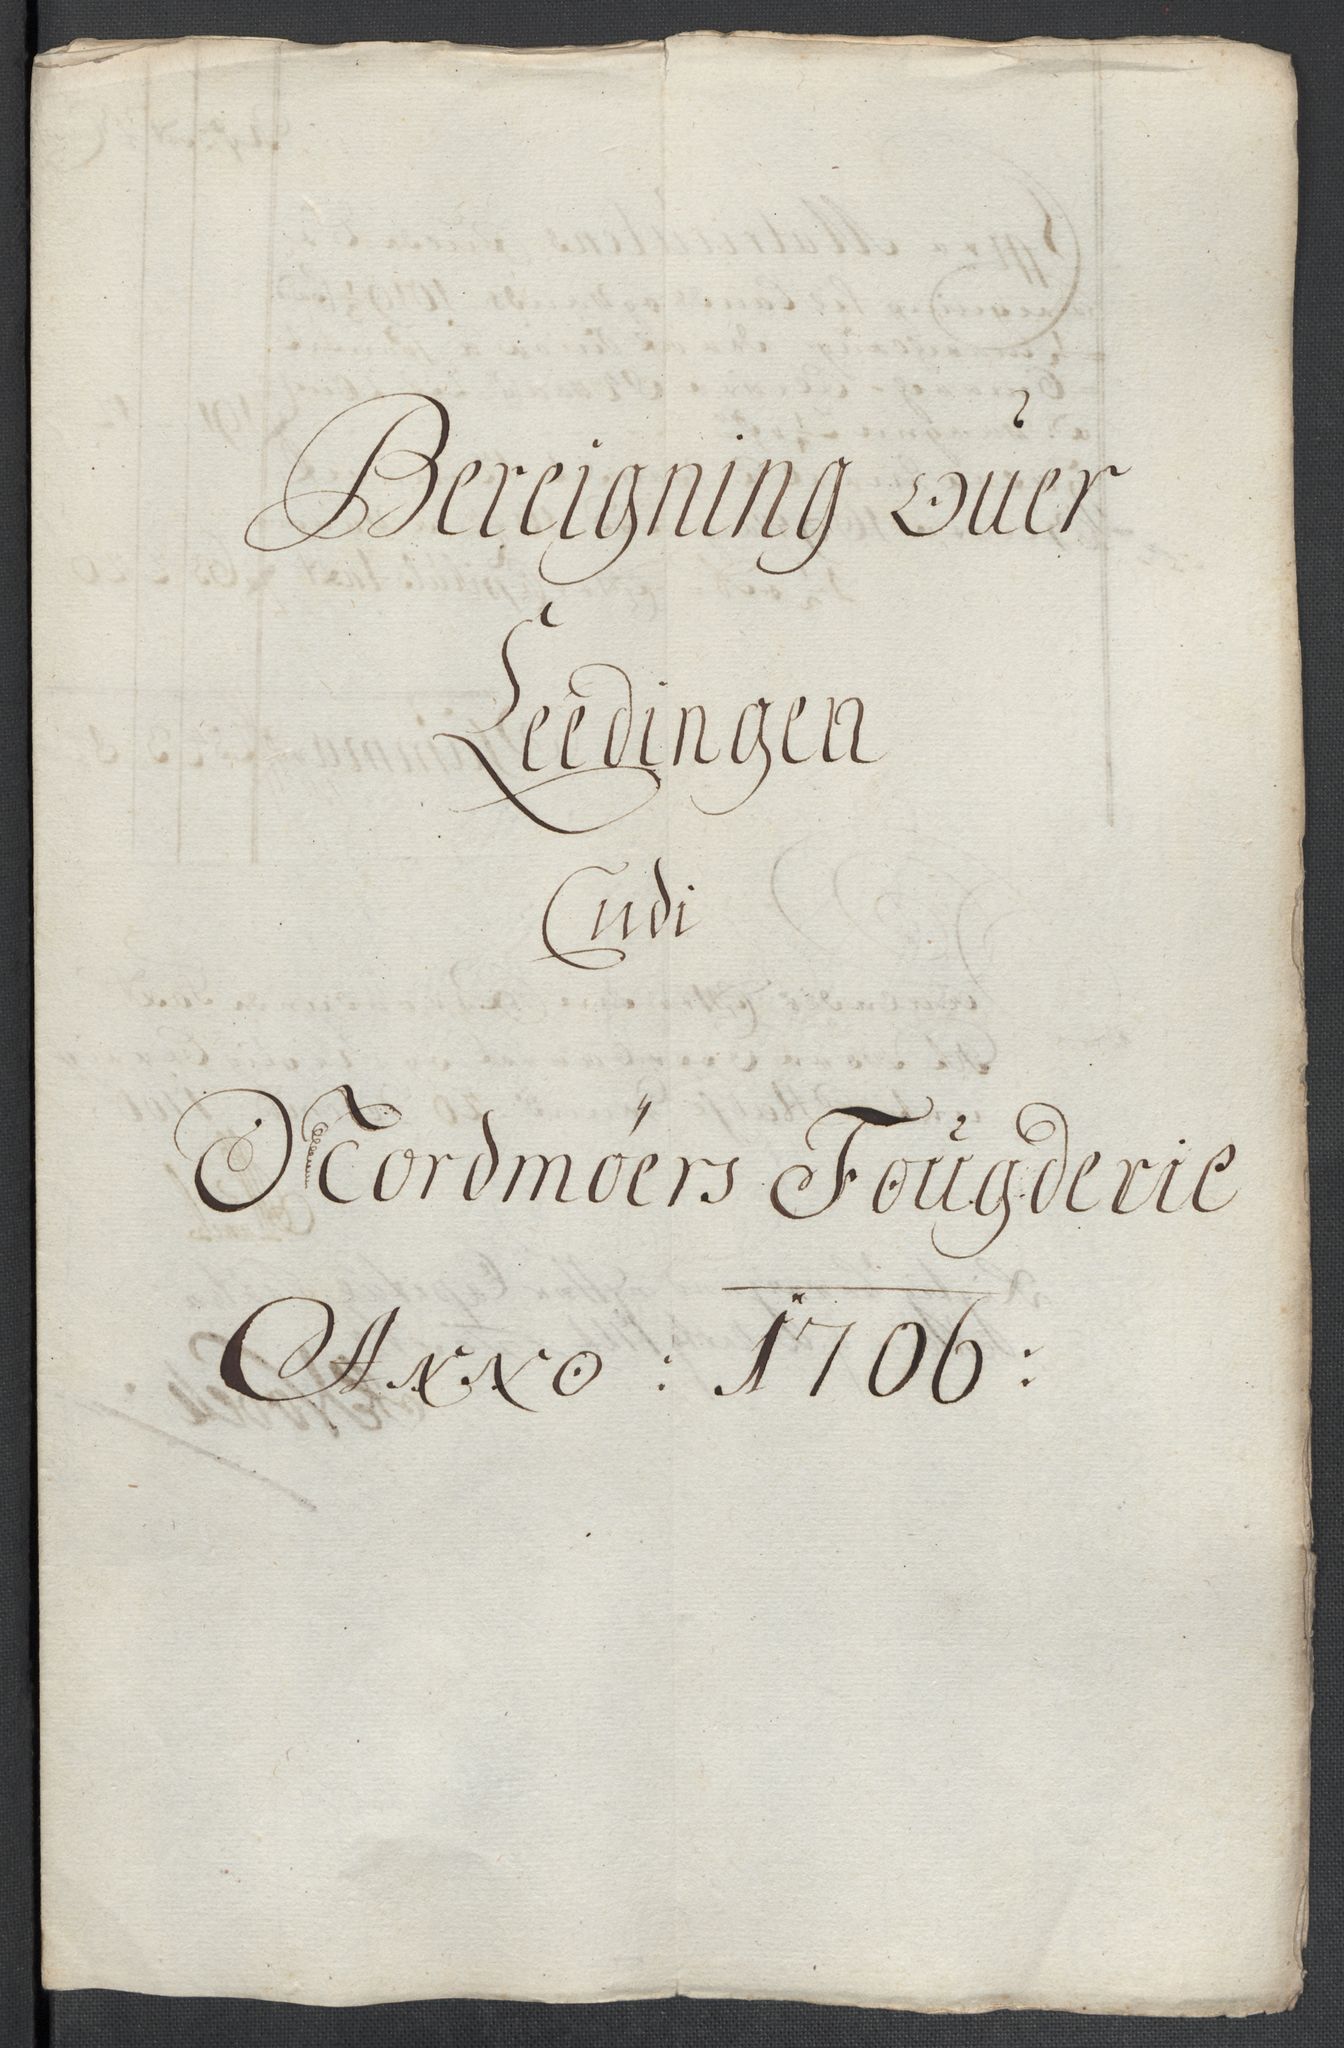 Bereigning ouer
Leedingen
Udi
Nordmöers Fougderie
Anno : 1706 :